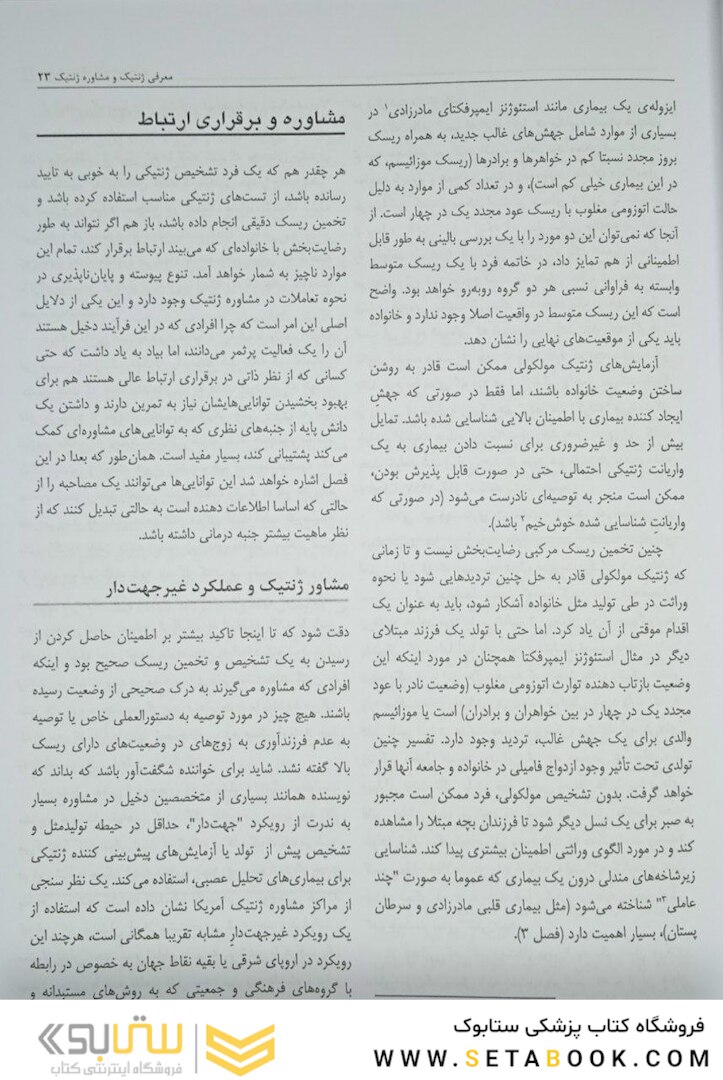 معرفی ژنتیک و مشاوره ژنتیک ۲۳
ایزوله‌ی یک بیماری مانند استئوژنز ایمپرفکتای مادرزادی۱ در
بسیاری از موارد شامل جهش‌های غالب جدید، به همراه ریسک
بروز مجدد نسبتا کم در خواهرها و برادرها (ریسک موزائیسم، که
در این بیماری خیلی کم است)، و در تعداد کمی از موارد به دلیل
حالت اتوزومی مغلوب با ریسک عود مجدد یک در چهار است. از
آنجا که نمی‌توان این دو مورد را با یک بررسی بالینی به طور قابل
اطمینانی از هم تمایز داد، در خاتمه فرد با یک ریسک متوسط
وابسته به فراوانی نسبی هر دو گروه روبه‌رو خواهد بود. واضح
است که این ریسک متوسط در واقعیت اصلا وجود ندارد و خانواده
باید یکی از موقعیت‌های نهایی را نشان دهد.
آزمایش‌های ژنتیک مولکولی ممکن است قادر به روشن
ساختن وضعیت خانواده باشند، اما فقط در صورتی که جهش
ایجاد کننده بیماری با اطمینان بالایی شناسایی شده باشد. تمایل
بیش از حد و غیرضروری برای نسبت دادن بیماری به یک
واریانت ژنتیکی احتمالی، حتی در صورت قابل پذیرش بودن،
ممکن است منجر به توصیه‌ای نادرست می‌شود (در صورتی که
واریانتِ شناسایی شده خوش‌خیم۲ باشد).
چنین تخمین ریسک مرکبی رضایت‌بخش نیست و تا زمانی
که ژنتیک مولکولی قادر به حل چنین تردیدهایی شود یا نحوه
وراثت در طی تولید مثل خانواده آشکار شود، باید به عنوان یک
اقدام موقتی از آن یاد کرد. اما حتی با تولد یک فرزند مبتلای
دیگر در مثال استئوژنز ایمپرفکتا همچنان در مورد اینکه این
وضعیت بازتاب دهنده توارث اتوزومی مغلوب (وضعیت نادر با عود
مجدد یک در چهار در بین خواهران و برادران) است یا موزائیسم
والدی برای یک جهش غالب، تردید وجود دارد. تفسیر چنین
تولدی تحت تأثیر وجود ازدواج فامیلی در خانواده و جامعه آنها قرار
خواهد گرفت. بدون تشخیص مولکولی، فرد ممکن است مجبور
به صبر برای یک نسل دیگر شود تا فرزندان بچه مبتلا را مشاهده
کند و در مورد الگوی وراثتی اطمینان بیشتری پیدا کند. شناسایی
زیرشاخه‌های مندلی درون یک بیماری که عموما به صورت "چند
عاملی۳" شناخته می‌شود (مثل بیماری قلبی مادرزادی و سرطان
پستان)، بسیار اهمیت دارد (فصل ۳).
مشاوره و برقراری ارتباط
هر چقدر هم که یک فرد تشخیص ژنتیکی را به خوبی به تایید
رسانده باشد، از تست‌های ژنتیکی مناسب استفاده کرده باشد و
تخمین ریسک دقیقی انجام داده باشد، باز هم اگر نتواند به طور
رضایت‌بخش با خانواده‌ای که می‌بیند ارتباط برقرار کند، تمام این
موارد ناچیز به شمار خواهد آمد. تنوع پیوسته و پایان‌ناپذیری در
نحوه تعاملات در مشاوره ژنتیک وجود دارد و این یکی از دلایل
اصلی این امر است که چرا افرادی که در این فرآیند دخیل هستند
آن را یک فعالیت پرثمر می‌دانند، اما بیاد به یاد داشت که حتی
کسانی که از نظر ذاتی در برقراری ارتباط عالی هستند هم برای
بهبود بخشیدن توانایی‌هایشان نیاز به تمرین دارند و داشتن یک
دانش پایه از جنبه‌های نظری که به توانایی‌های مشاوره‌ای کمک
می‌کند پشتیبانی کند، بسیار مفید است. همان‌طور که بعدا در این
فصل اشاره خواهد شد این توانایی‌ها می‌توانند یک مصاحبه را از
حالتی که اساسا اطلاعات دهنده است به حالتی تبدیل کنند که از
نظر ماهیت بیشتر جنبه درمانی داشته باشد.
مشاور ژنتیک و عملکرد غیرجهت‌دار
دقت شود که تا اینجا تاکید بیشتر بر اطمینان حاصل کردن از
رسیدن به یک تشخیص و تخمین ریسک صحیح بود و اینکه
افرادی که مشاوره می‌گیرند به درک صحیحی از وضعیت رسیده
باشند. هیچ چیز در مورد توصیه به دستورالعملی خاص یا توصیه
به عدم فرزندآوری به زوج‌های در وضعیت‌های دارای ریسک
بالا گفته نشد. شاید برای خواننده شگفت‌آور باشد که بداند که
نویسنده همانند بسیاری از متخصصین دخیل در مشاوره بسیار
به ندرت از رویکرد "جهت‌دار"، حداقل در حیطه تولیدمثل و
تشخیص پیش از تولد یا آزمایش‌های پیش‌بینی کننده ژنتیکی
برای بیماری‌های تحلیل عصبی، استفاده می‌کند. یک نظر سنجی
از مراکز مشاوره ژنتیک آمریکا نشان داده است که استفاده از
یک رویکرد غیرجهت‌دارِ مشابه تقریبا همگانی است، هرچند این
رویکرد در اروپای شرقی یا بقیه نقاط جهان به خصوص در رابطه
با گروه‌های فرهنگی و جمعیتی که به روش‌های مستبدانه و
فروشگاه کتاب پزشکی ستابوک
WWW.SETABOOK.COM
ستابوک
فروشگاه اینترنتی کتاب